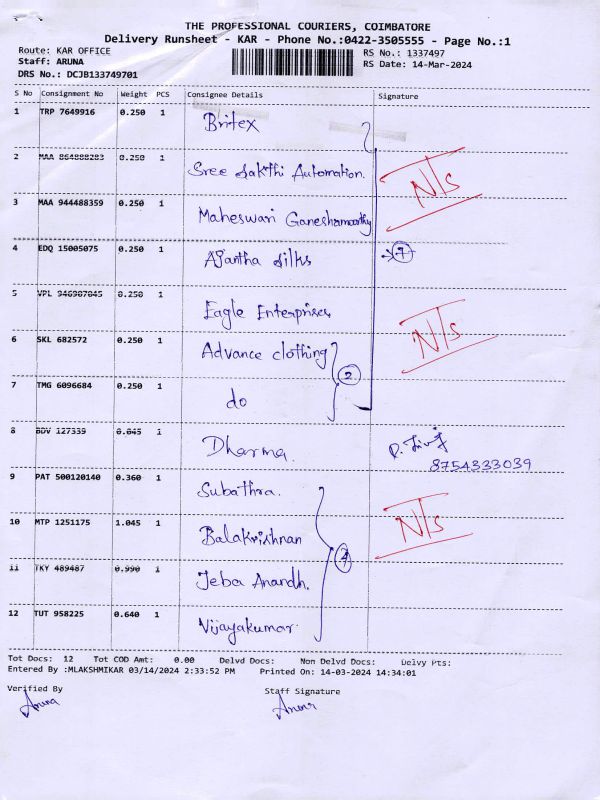 THE PROFESSIONAL COURIERS, COIMBATORE
Delivery Runsheet - KAR - Phone No.:0422-3505555 - Page No.:1
Route: KAR OFFICE
RS No.: 1337497
Staff: ARUNA
RS Date: 14-Mar-2024
DRS No.: DCJB133749701
S No Consignment No Weight PCS Consignee Details Signature
1 TRP 7649916 0.250 1 Britex
2 MAA 864888283 0.250 1 Sree Sakthi Automation. N/S
3 MAA 944488359 0.250 1 Maheswari Ganeshamoorthy
4 EDQ 15005075 0.250 1 Ajantha Silks 7
5 VPL 946907045 0.250 1 Eagle Enterprises
6 SKL 682572 0.250 1 Advance clothing N/S
2
7 TMG 6096684 0.250 1 do
8 BDV 127339 0.045 1 Dharma.
8754333039
9 PAT 500120140 0.360 1 Subathra.
10 MTP 1251175 1.045 1 Balakrishnan N/S
4
11 TKY 489487 0.990 1 Jeba Anandh.
12 TUT 958225 0.640 1 Vijayakumar
Tot Docs: 12 Tot COD Amt: 0.00 Delvd Docs: Non Delvd Docs: Delvy Pts:
Entered By :MLAKSHMIKAR 03/14/2024 2:33:52 PM Printed On: 14-03-2024 14:34:01
Verified By Staff Signature
Aruna